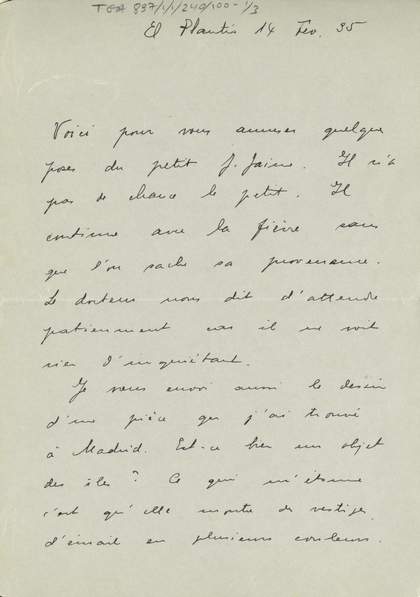 TGA 897/1/1/240/100-1/3
El Plantiu 14 Fev. 35
Voici pour vous amuser quelque
poses du petit J. Jaime. Il n'a
pas de chance le petit. Il
continue avec la fièvre sans
que l'on sache sa provenance.
Le docteur nous dit d'attendre
patienment car il ne voit
rien d'inquiétant.
Je vous envoi aussi le dessin
d'une pièce que j'ai trouvé
à Madrid. Est-ce bien un objet
des îles ? Ce qui m'étonne
c'est qu'elle montre des vestiges
d'émail en plusieurs couleurs.